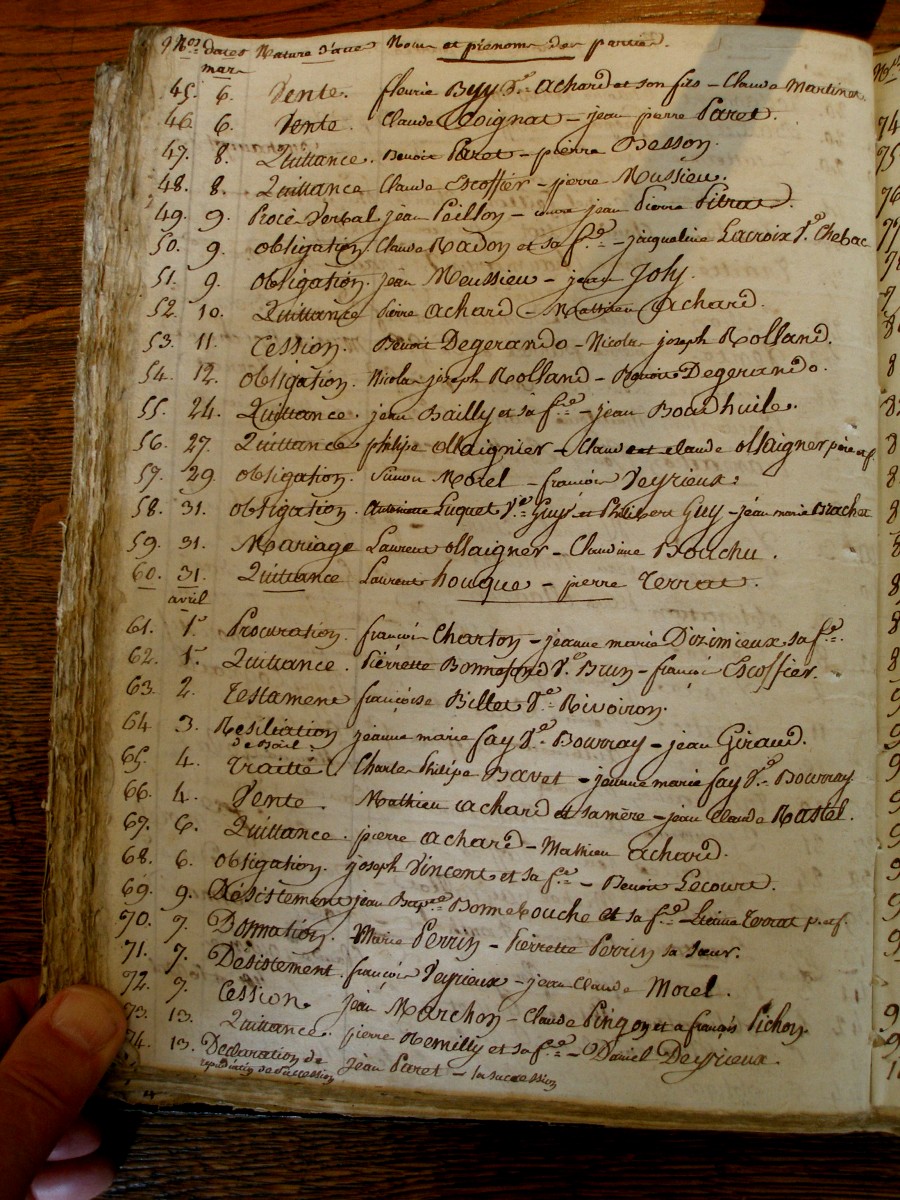 Nos dates Nature d'acte Noms et prénoms des parties.
mars
45. 6. Vente. fleurie Byy Ve. Achard et son fils - Claude Martinet
46. 6. Vente. Claude Coignat - jean pierre Paret.
47. 8. Quittance. Benoit Paret - pierre Besson.
48. 8. Quittance Claude Escoffier - pierre Mussieu.
49. 9. Procè Verbal jean Peillon - jean Pierre Pitrat.
50. 9. obligation Claude Radon et sa fe. - jacqueline Lacroix Ve. Chebac
51. 9. obligation. jean Meussieu - jean Joly.
52. 10. Quittance pierre achard - Mathieu achard.
53. 11. Cession. Benoit Degerando - Nicolas joseph Rolland.
54. 12. obligation. Nicolas joseph Rolland - Benoit Degerando.
55. 24. Quittance. jean Bailly et sa fe. - jean Boudhuile.
56. 27. Quittance philipe ollaignier - Claude et claude ollaigner père et f.
57. 29 obligation. Simon Morel - françois Veyrieux.
58. 31. obligation. Antoinette Luquet Ve. Guy et Philibert Guy - jean marie Brachet
59. 31. Mariage Laurent ollaigner - Claudine Bouchu.
60. 31. Quittance Laurent houque - pierre Terrat.
avril
61. 1r Procuration. françois Charton - jeanne marie Dizimieux sa fe.
62. 1r. Quittance. Pierrette Bonnefond Ve. Brun - françois Escoffier.
63. 2. Testament françoise Billet Ve. Rivoiron.
64 3. Resiliation jeanne marie fay Ve. Bourray - jean Giraud.
de Bail
65. 4. Traitté Charles Philipe Bavet - jeanne marie fay Ve. Bourray
66. 4. Vente. Mathieu achard et sa mère - jean Claude Rastel.
67. 6. Quittance. pierre achard - Mathieu achard.
68. 6. obligation. joseph Vincent et sa fe. - Benoit Lecourt.
69. 9. Désistement jean Bapte Bonnebouche et sa fe. - Terrat p. et f.
70. 7. Donnation. Marie Perrin - Pierrette Perrin sa sœur.
71. 7. Désistement. françois Veyrieux - jean Claude Morel.
72. 7. Cession. jean Marchon - Claude Pingon et a françois Pichon
73. 13. Quittance. pierre Remilly et sa fe. - Daniel Deyrieux.
74. 13. Déclaration de Jean Paret - la succession
repudiation de succession